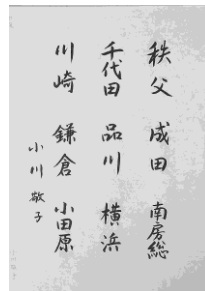 秩父 成田 南房総
千代田 品川 横浜
川崎 鎌倉 小田原
小川敬子